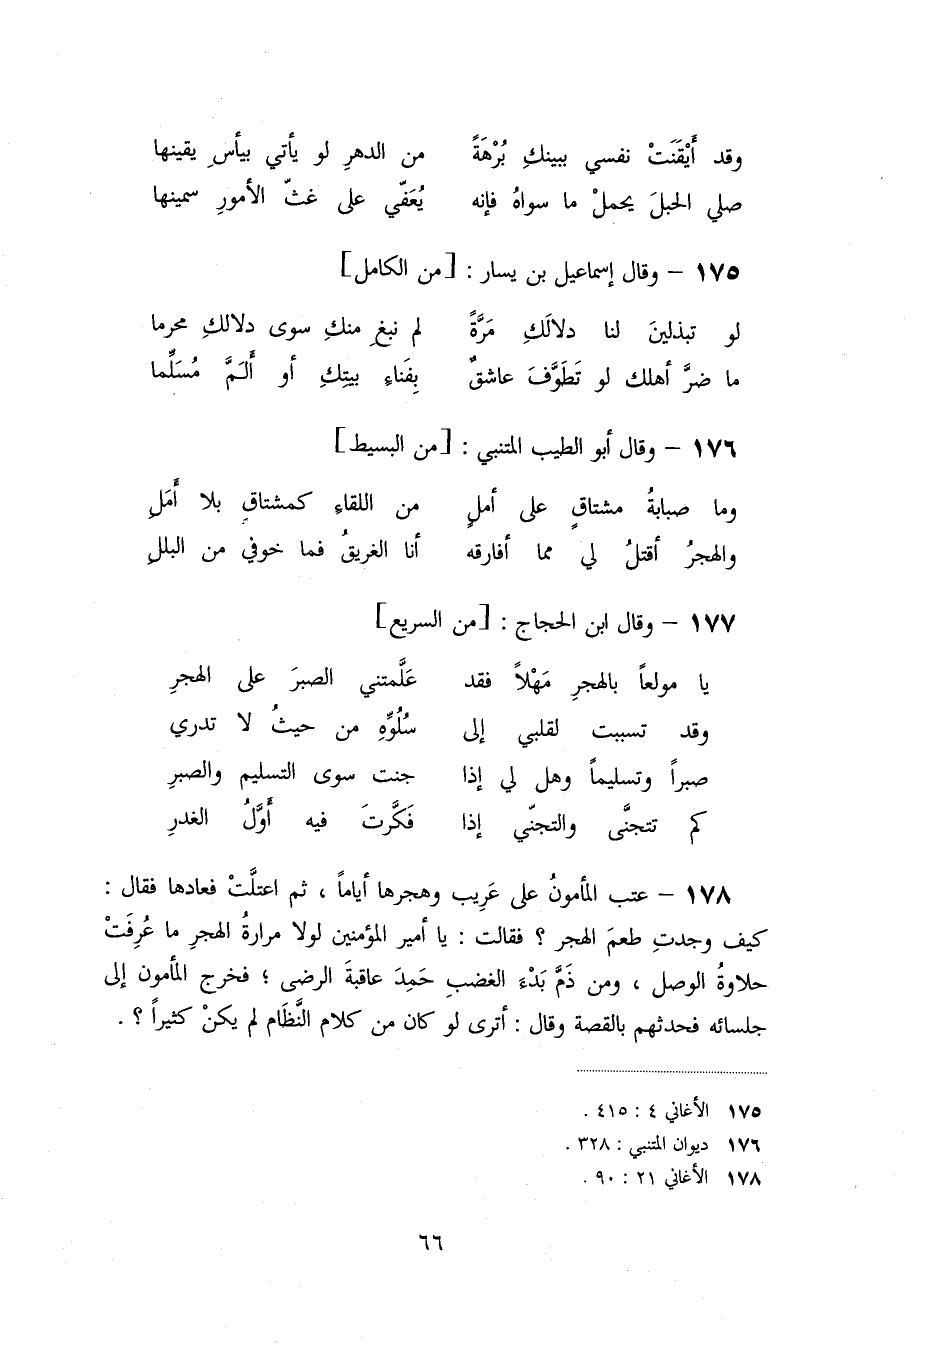 وقد أَيْقَنَتْ نفسي ببينكِ بُرْهَةً من الدهرِ لو يأتي بيأسِ يقينها
صلي الحبلَ يحملْ ما سواهُ فإنه يُعَفّي على غثّ الأمورِ سمينها
١٧٥ – وقال إسماعيل بن يسار : [من الكامل]
لو تبذلينَ لنا دلالَكِ مَرَّةً لم نبغِ منكِ سوى دلالكِ محرما
ما ضرَّ أهلك لو تَطَوَّفَ عاشقٌ بِفَناءِ بيتِكِ أو أَلَمَّ مُسَلِّما
١٧٦ – وقال أبو الطيب المتنبي : [من البسيط]
وما صبابةُ مشتاقٍ على أملٍ من اللقاءِ كمشتاقٍ بلا أَمَلِ
والهجرُ أقتلُ لي مما أفارقه أنا الغريقُ فما خوفي من البللِ
١٧٧ – وقال ابن الحجاج : [من السريع]
يا مولعاً بالهجرِ مَهْلاً فقد عَلَّمتني الصبرَ على الهجرِ
وقد تسببت لقلبي إلى سُلُوِّهِ من حيثُ لا تدري
صبراً وتسليماً وهل لي إذا جنت سوى التسليم والصبرِ
كم تتجنَّى والتجنّي إذا فَكَّرتَ فيه أَوَّلُ الغدرِ
١٧٨ – عتب المأمونُ على عَرِيب وهجرها أياماً ، ثم اعتلَّتْ فعادها فقال :
كيف وجدتِ طعمَ الهجر ؟ فقالت : يا أمير المؤمنين لولا مرارةُ الهجرِ ما عُرِفَتْ
حلاوةُ الوصل ، ومن ذَمَّ بَدْءَ الغضبِ حَمِدَ عاقبةَ الرضى ؛ فخرج المأمون إلى
جلسائه فحدثهم بالقصة وقال : أترى لو كان من كلام النَّظَام لم يكنْ كثيراً ؟ .
١٧٥ الأغاني ٤ : ٤١٥ .
١٧٦ ديوان المتنبي : ٣٢٨ .
١٧٨ الأغاني ٢١ : ٩٠ .
٦٦